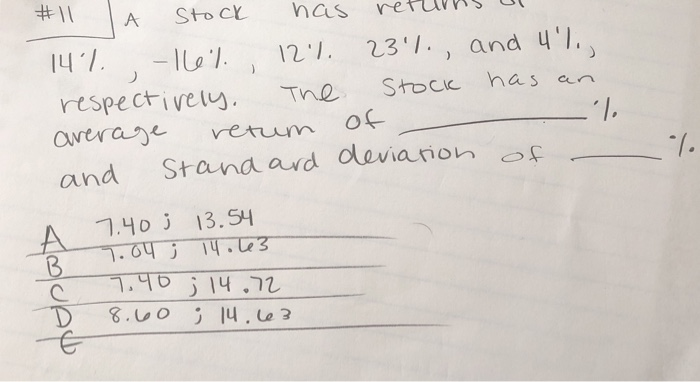 #11 A Stock has returns of
14%, -16%, 12%. 23%., and 4%.,
respectively. The Stock has an
average return of ________%.
and Standard deviation of ____%.
A 7.40 ; 13.54
B 7.04 ; 14.63
C 7.40 ; 14.72
D 8.60 ; 14.63
E